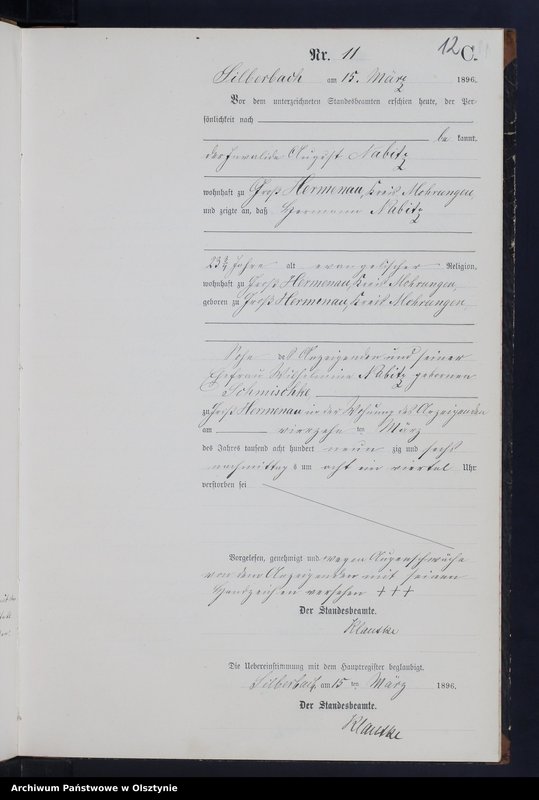 12
Nr. 11 C.
Silberbach am 15. März 1896.
Vor dem unterzeichneten Standesbeamten erschien heute, der Per-
sönlichkeit nach
be kannt,
der Invalide August Nabitz
wohnhaft zu Groß Hermenau, Kreis Mohrungen
und zeigte an, daß Hermann Nabitz
23 3/4 Jahre alt evangelischer Religion,
wohnhaft zu Groß Hermenau, Kreis Mohrungen,
geboren zu Groß Hermenau, Kreis Mohrungen,
Sohn des Anzeigenden und seiner
Ehefrau Wilhelmine Nabitz geborenen
Schmischke
zu Groß Hermenau in der Wohnung des Anzeigenden
am vierzehn ten März
des Jahres tausend acht hundert neun zig und sechs
nachmittag s um acht ein viertel Uhr
verstorben sei
Vorgelesen, genehmigt und wegen Augenschwäche
von dem Anzeigenden mit seinen
Handzeichen versehen +++
Der Standesbeamte.
Klautke
Die Uebereinstimmung mit dem Hauptregister beglaubigt.
Silberbach, am 15 ten März 1896.
Der Standesbeamte.
Klautke
Archiwum Państwowe w Olsztynie